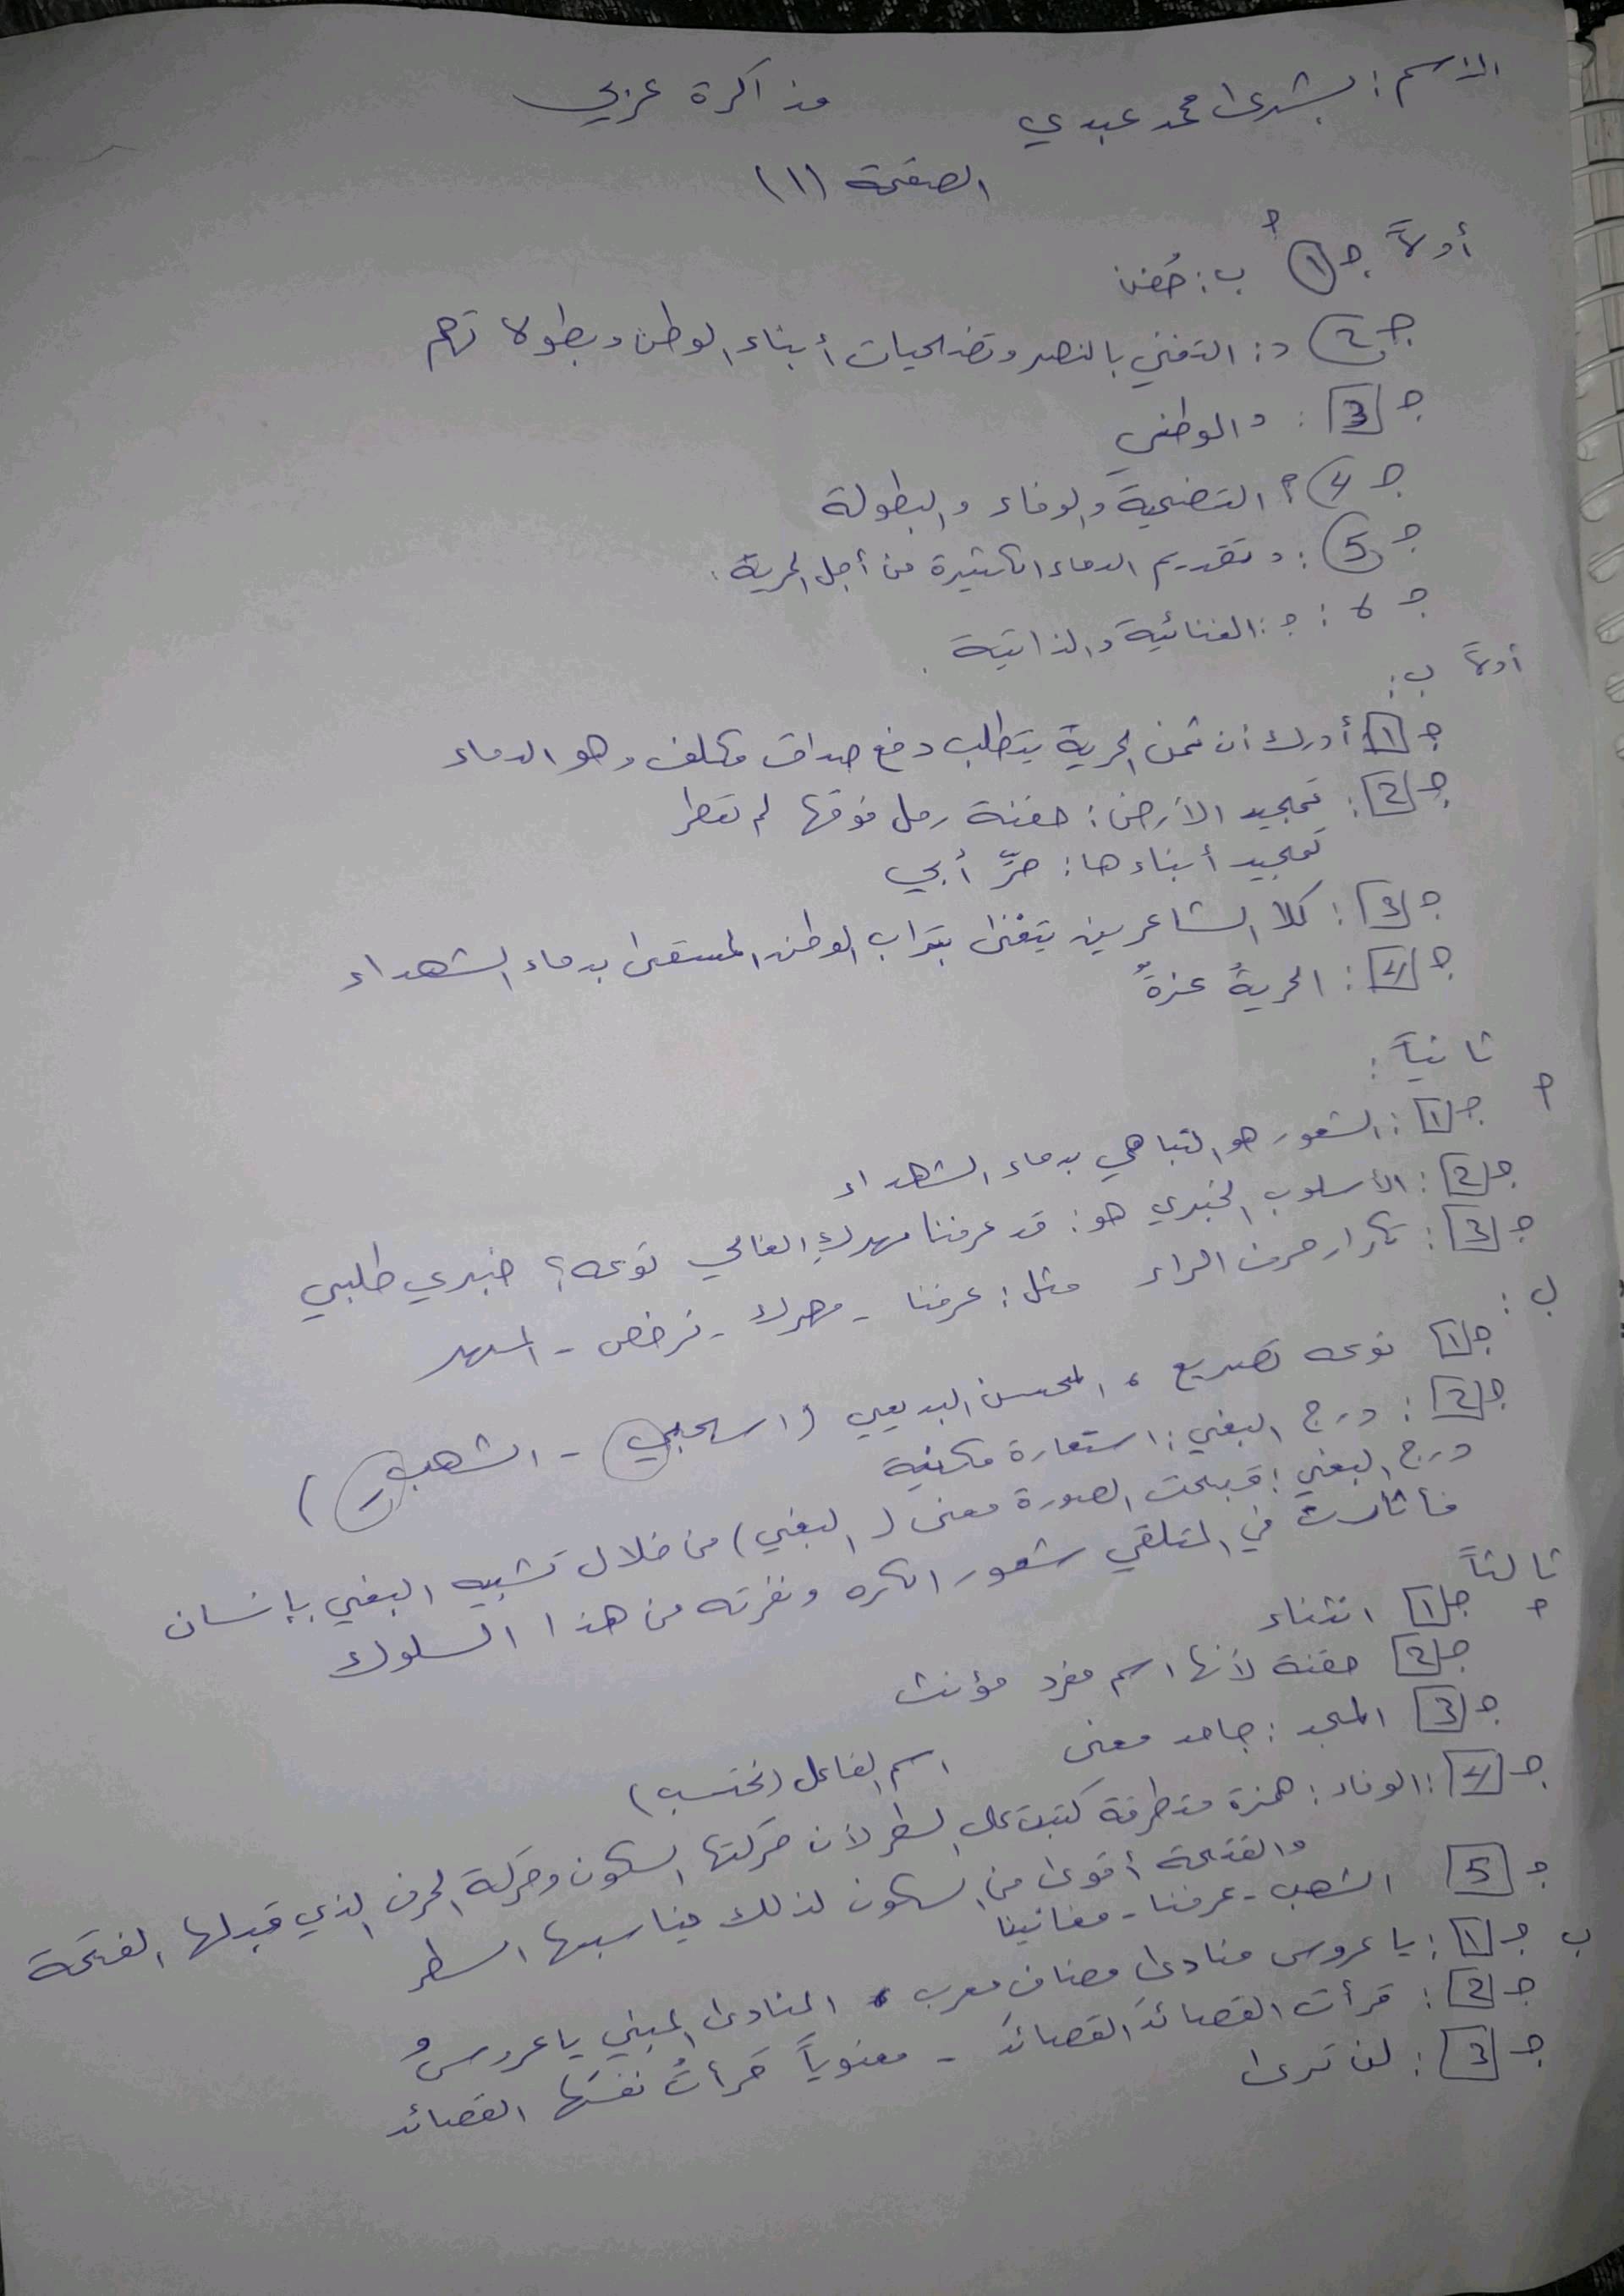 الاسم: بشرى محمد عبدي
مذاكرة عربي
الصفحة (١)
أولاً أ ج ١ ب: حُفن
ج 2 د: التغني بالنصر وتضحيات أبناء الوطن وبطولاتهم
ج 3: د الوطني
ج 4 أ التضحية والوفاء والبطولة
ج 5: د تقديم الدماء الكثيرة من أجل الحرية.
ج 6: ج: الغنائية والذاتية.
أولاً ب:
ج 1 أدرك أن ثمن الحرية يتطلب دفع صداق مكلف وهو الدماء
ج 2: تمجيد الأرض: حفنة رمل فوقها لم تعطر
تمجيد أبناءها: حرّ أبي
ج 3: كلا الشاعرين يتغنى بتراب الوطن المسقى بدماء الشهداء
ج 4: الحريةُ عزةٌ
ثانياً:
أ ج 1: الشعور هو التباهي بدماء الشهداء
ج 2: الأسلوب الخبري هو: قد عرفنا مهركِ الغالي نوعه؟ خبري طلبي
ج 3: تكرار حرف الراء مثل: عرفنا - مهرك - نرخص - المهر
ب:
ج 1 نوعه تصريع، المحسن البديعي (اسحبي - الشهبِ)
ج 2: درج البغي: استعارة مكنية
درج البغي: قبحت الصورة معنى (البغي) من خلال تشبيه البغي بإنسان
فأثارت في المتلقي شعور الكره ونفرته من هذا السلوك
ثالثاً
أ ج 1 انتشاء
ج 2 حفنة لأنها اسم مفرد مؤنث
ج 3 المجد: جامد معنى اسم الفاعل (مختسب)
ج 4: الوفاء: همزة متطرفة كتبت على السطر لأن حركتها السكون وحركة الحرف الذي قبلها الفتحة
والفتحة أقوى من السكون لذلك يناسبها السطر
ج 5 الشهب - عرفنا - مغانينا
ب ج 1: يا عروس منادى مضاف معرب، المنادى المبني يا عروسُ
ج 2: قرأت القصائدَ القصائدَ - معنوياً قرأتُ نفسَها القصائد
ج 3: لن ترى